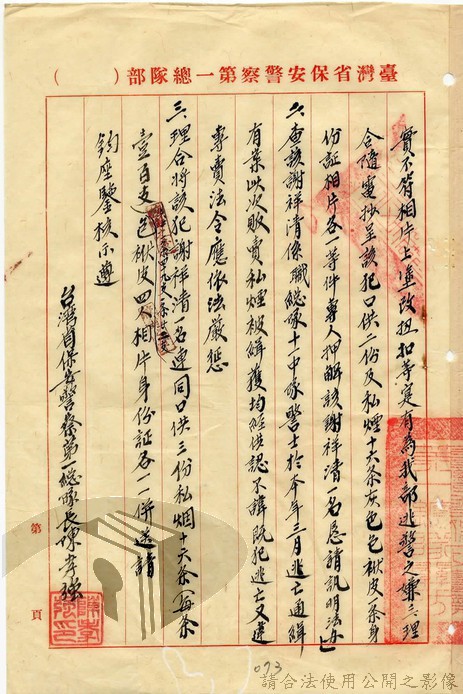 臺灣省保安警察第一總隊部（　）
實不符相片上塗改扭扣等寔有為我部逃警之嫌三理
合隨電抄呈該犯口供二份及私煙十六条灰色包袱皮条身
份証相片各一等件專人押解該謝祥清一名恳請訊明法辦
二、查該謝祥清係職總隊十一中隊警士於本年三月逃亡通緝
有業此次敗賣私煙被緝獲均經供認不諱既犯逃亡又違
專賣法令應依法嚴惩
三、理合將該犯謝祥清名連同口供三份私烟十六条（每条
壹百支）包袱皮四个相片身份証各一併送請
鈞座鑒核示遵
台灣省保安警察第一總隊長陳孝強
第　頁
073
請合法使用公開之影像